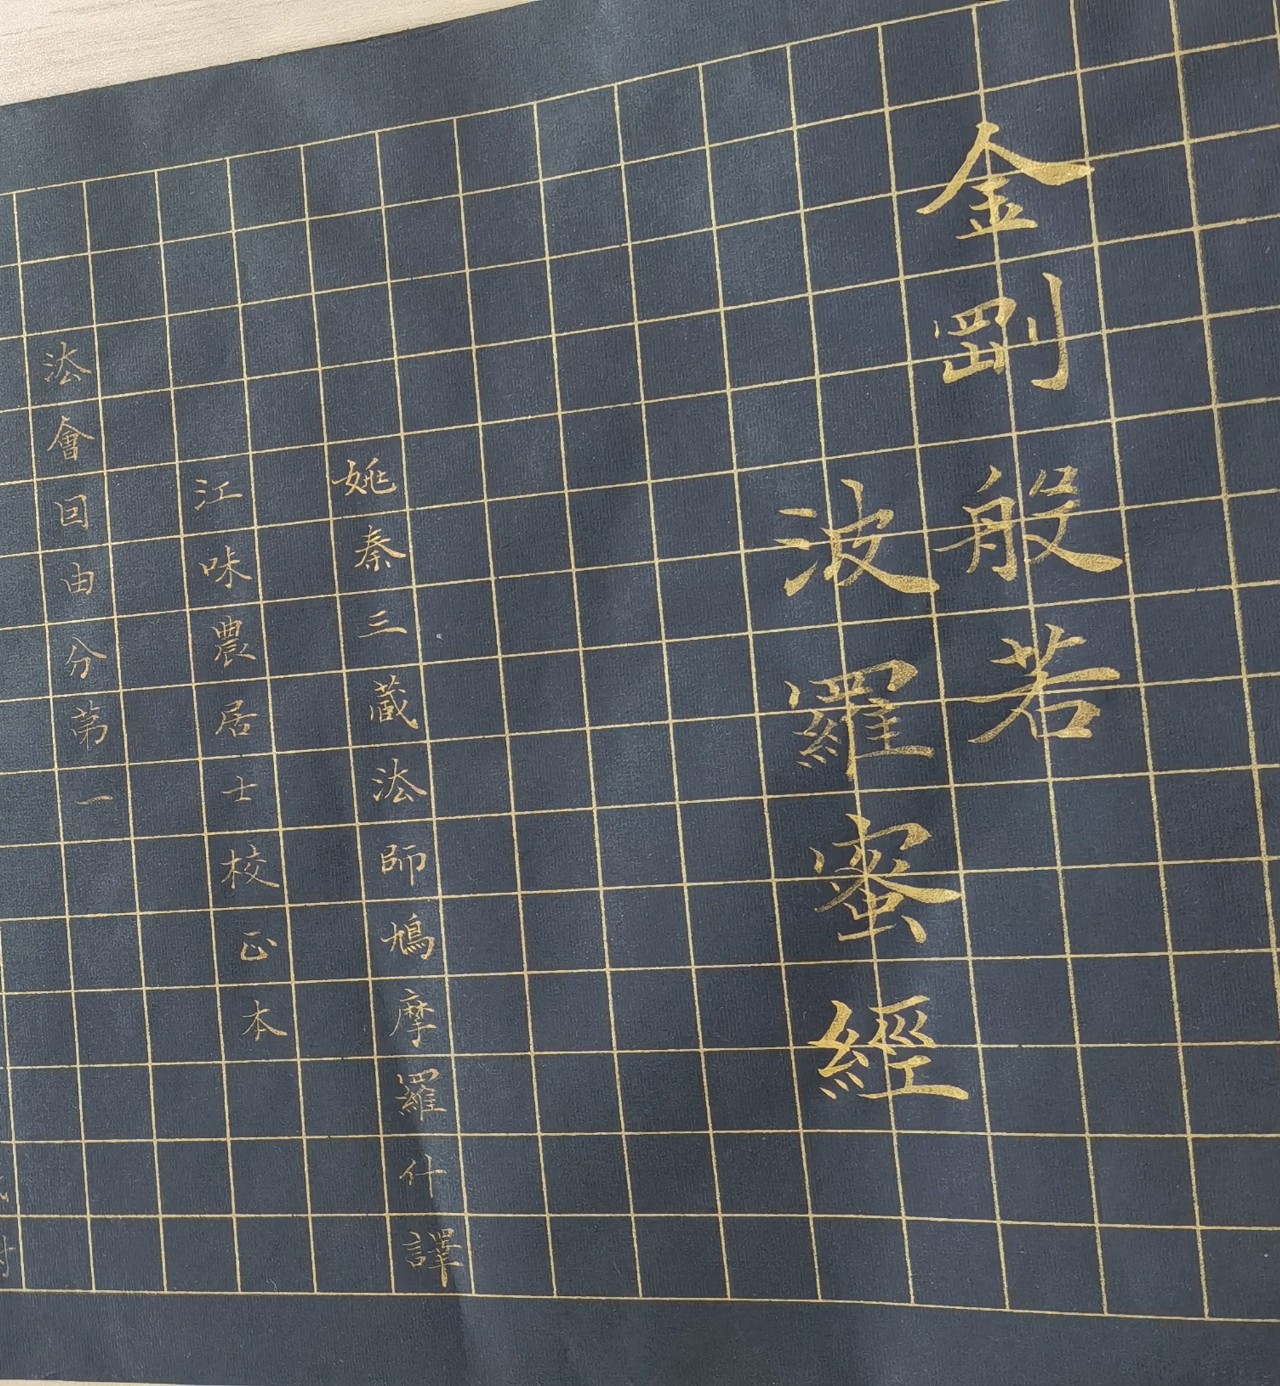 金剛般若
波羅蜜經
姚秦三藏法師鳩摩羅什譯
江味農居士校正本
法會因由分第一